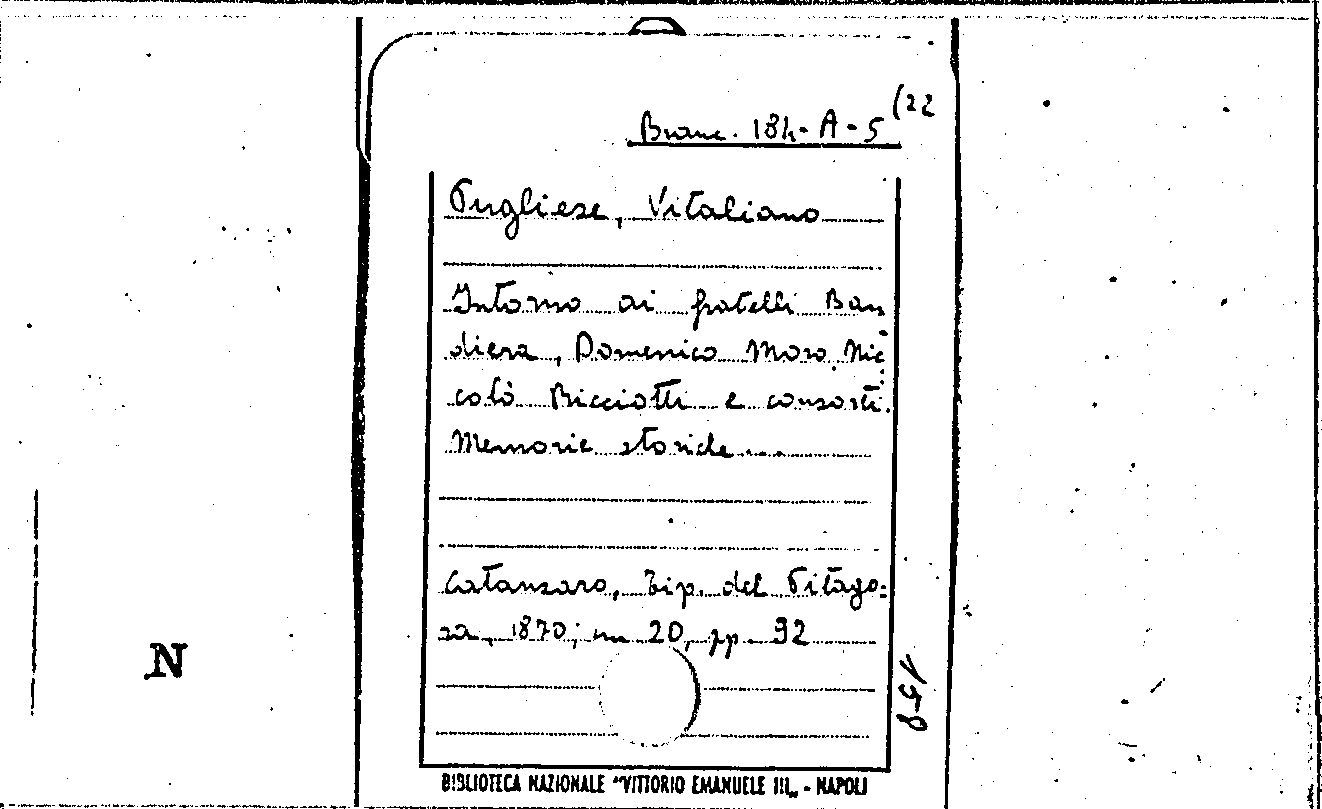 Branc. 184-A-5 (22
Pugliese, Vitaliano
Intorno ai fratelli Ban
diera, Domenico Moro Nic
colò Ricciotti e consorti.
Memorie storiche...
Catanzaro, Tip. del Pitago=
ra, 1870; in 20, pp. 92
N
BIBLIOTECA NAZIONALE "VITTORIO EMANUELE III„ - NAPOLI